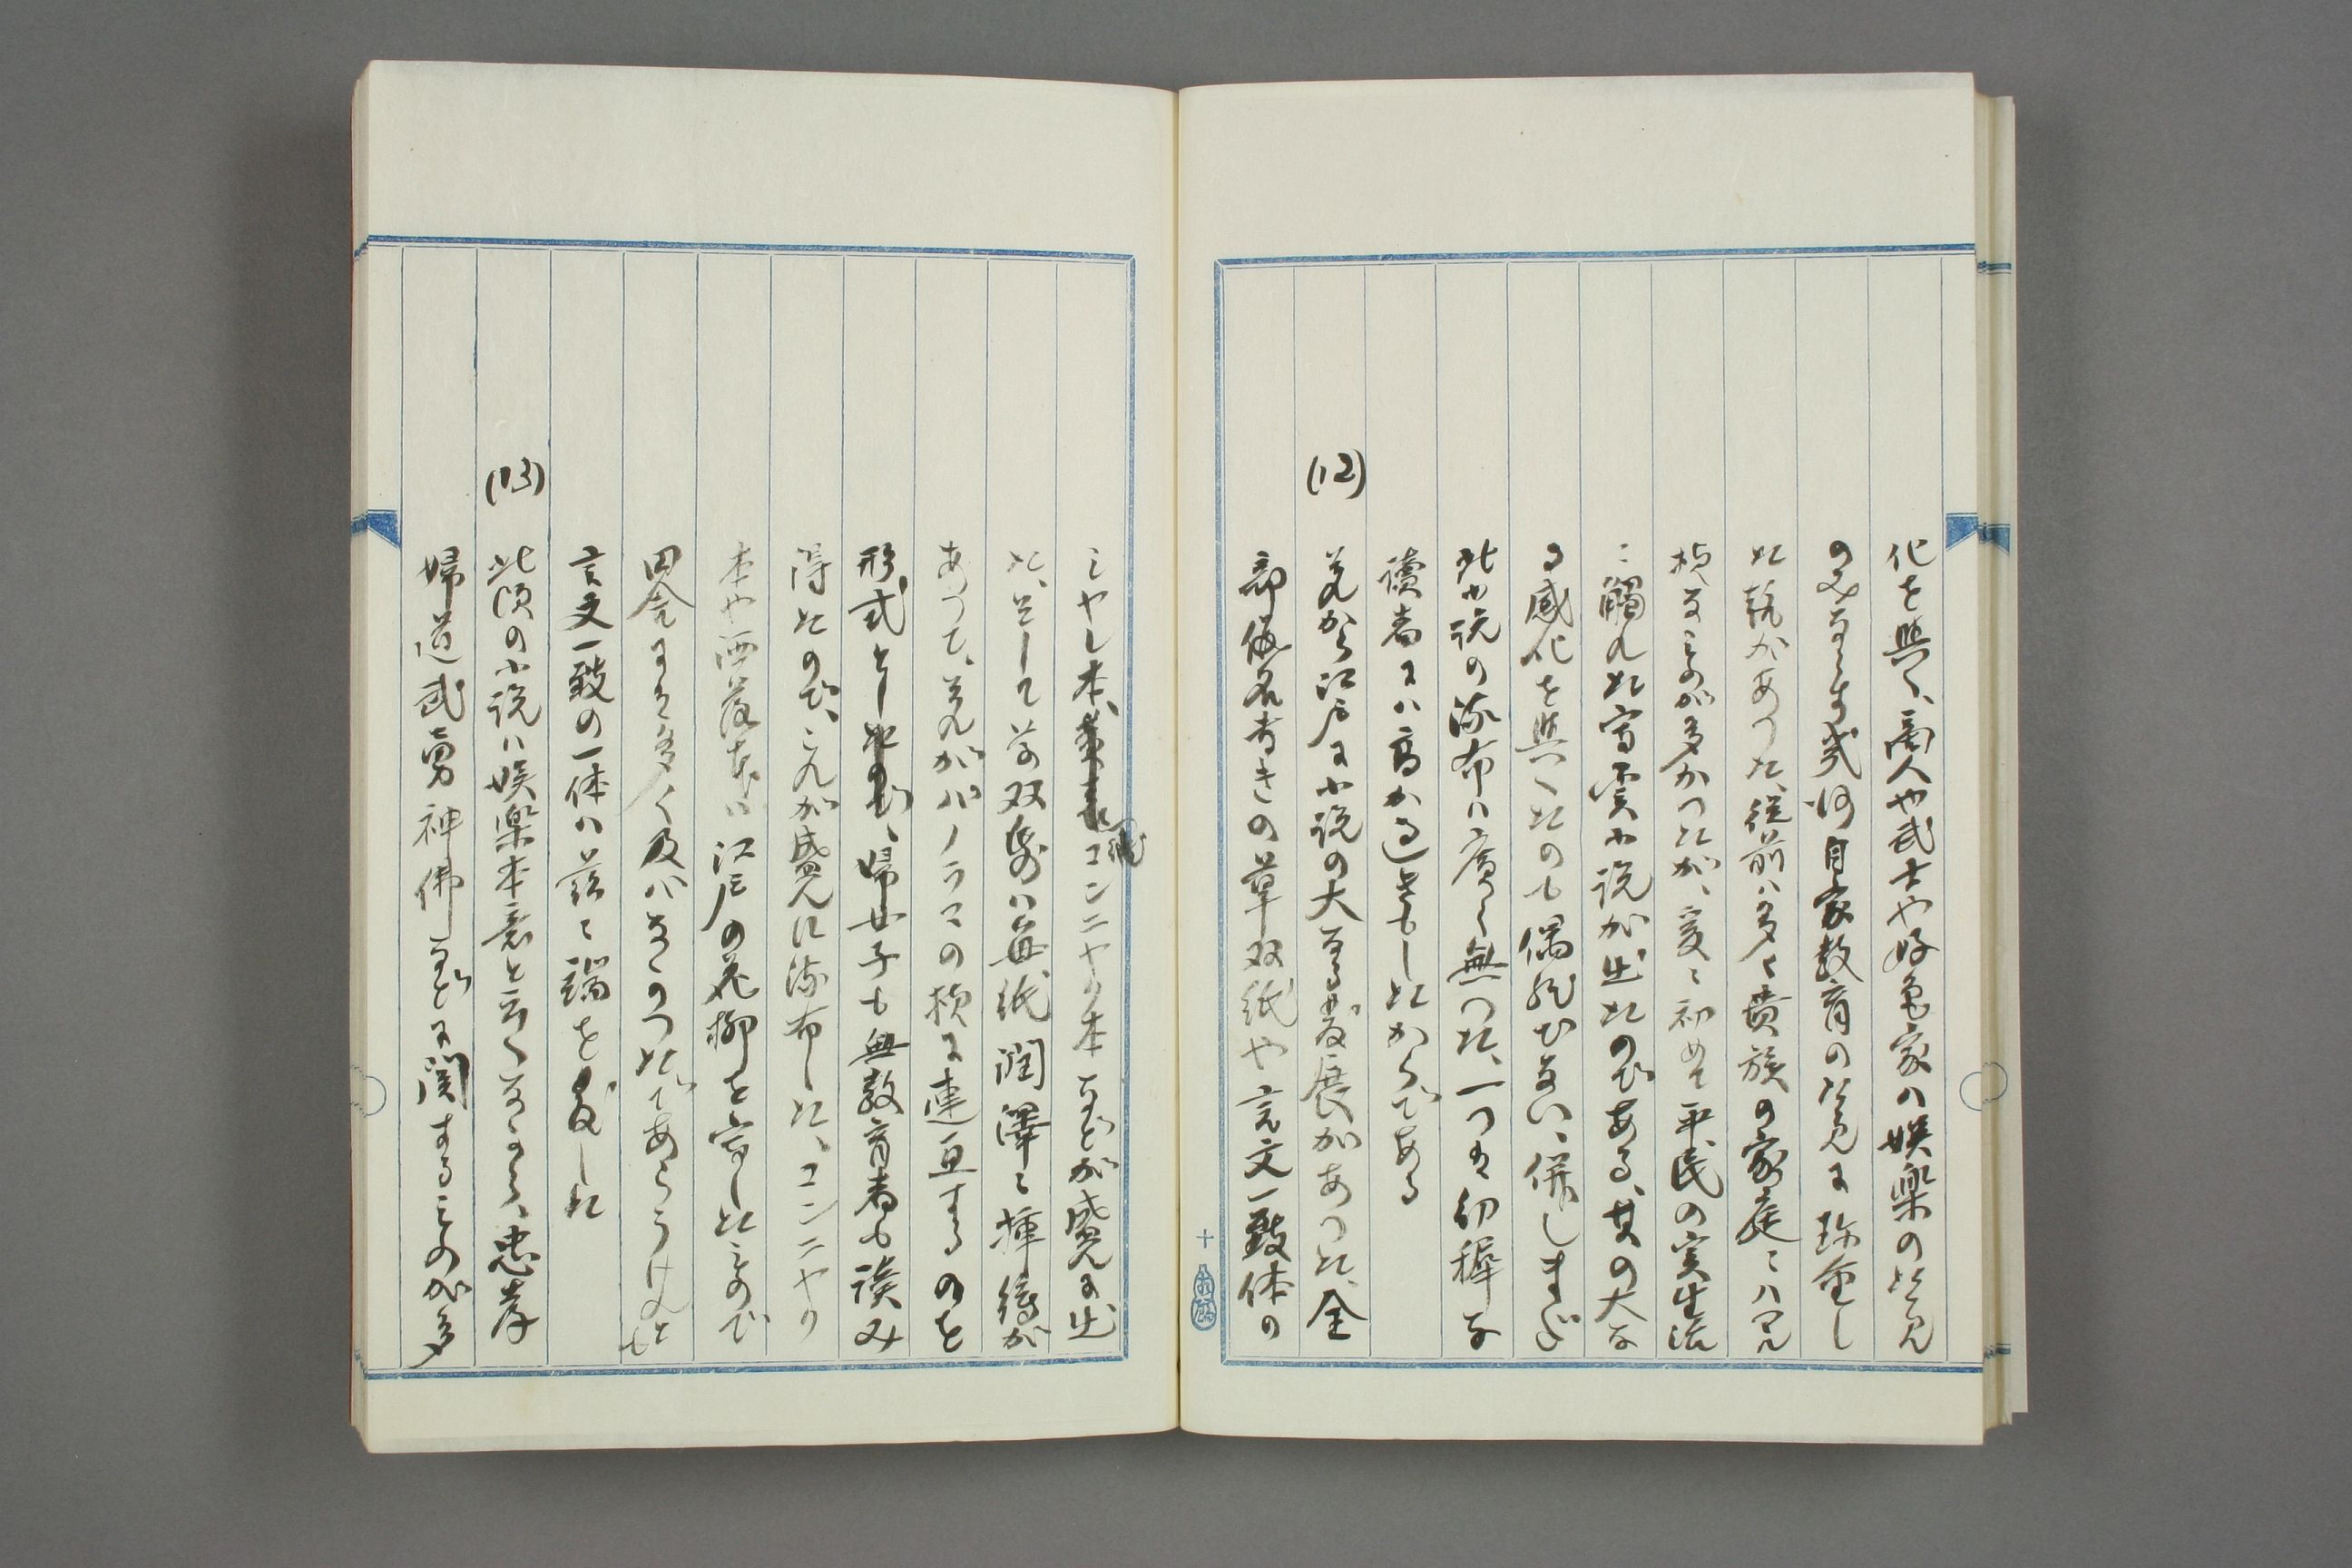 化を與へ、商人や武士や好色家の娯楽の片見
のみならず幾何自家教育の片見に珍重し
た観があつた、従前は多く貴族の家庭には
様なものが多かつたが、爰に初めて平民の実生活
に觸れた写実小説が出たのである、其の大な
る感化を與へたのも偶然ぢない、併しまだ
此小説の流布は廣く無つた、一つは幼稚な
讀者には高か過ぎもしたからである
(12)
夫から江戸に小説の大なる発展があつた、全
部仮名書きの草双紙や言文一致体の
シヤレ本、コンニヤク本などが盛んに出
た、そして草双紙は毎紙潤澤に挿繪が
あつて、夫がパノラマの様に連亘するのを
形式とし、婦女子も無教育者も読み
得たので、これが盛んに流布した、コンニヤク
本や洒落本は江戸の花柳を写したもので
田舎には多く及ばなかつたであらうけれども
言文一致の一体は茲に端を発した
(13)
此頃の小説は娯楽本意と云へなから、忠孝
婦道武勇神佛などに関するものが多
十